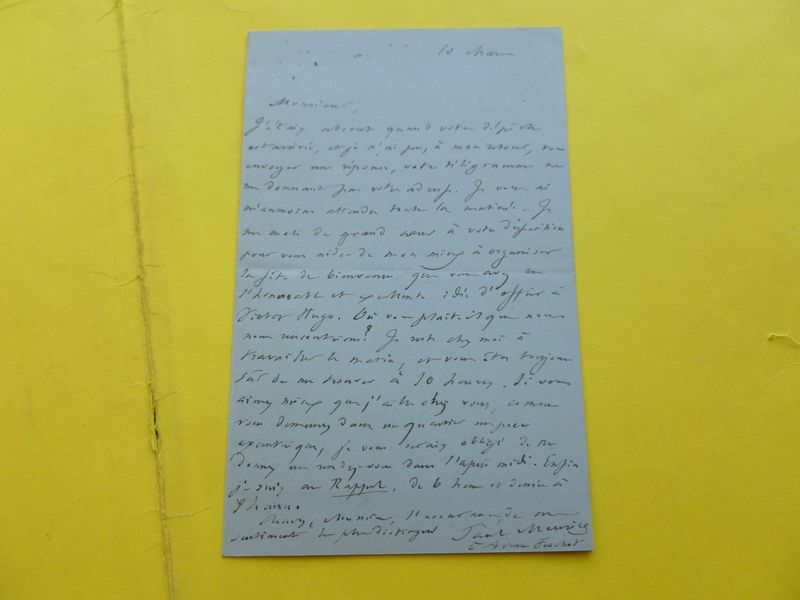 10 Mars
Monsieur,
J'étais absent quand votre dépêche
est arrivée, et je n'ai pu, à mon retour, vous
envoyer une réponse, votre télégramme ne
me donnant pas votre adresse. Je vous ai
néanmoins attendu toute la matinée. Je
me mets de grand cœur à votre disposition
pour vous aider de mon mieux à organiser
la fête de bienvenue que vous avez eu
l'honorable et excellente idée d'offrir à
Victor Hugo. Où vous plaît-il que nous
nous rencontrions? Je reste chez moi à
travailler le matin, et vous êtes toujours
sûr de me trouver à 10 heures. Si vous
aimez mieux que j'aille chez vous, comme
vous demeurez dans un quartier un peu
excentrique, je vous serais obligé de me
donner un rendez-vous dans l'après midi. Enfin
je suis au Rappel, de 6 heures et demie à
heures.
Monsieur, l'assurance de mes
sentiments les plus distingués Paul Meurice
5 Avenue Frochot